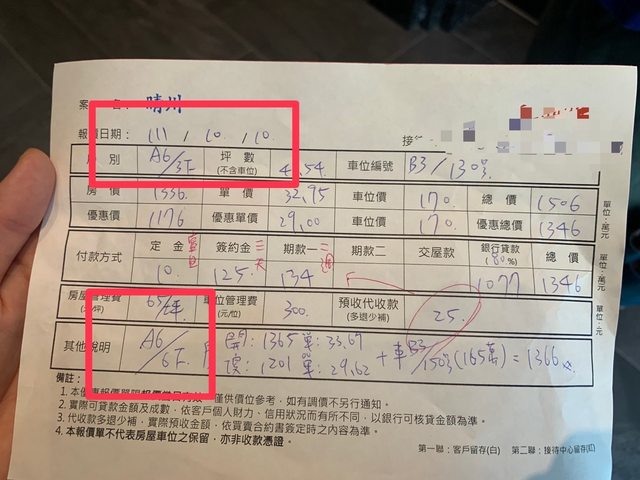 案 名: 晴川
報價日期: 111 / 10 / 10. 接
戶 別 A6/3F 坪 數 (不含車位) 4 .54 車位編號 B3/130號
房 價 1336 單 價 32.95 車位價 170 總 價 1506
優惠價 1176 優惠單價 29.00 車位價 170 優惠總價 1346
單位:萬元
付款方式 定 金 簽約金 期款一 期款二 交屋款 銀行貸款 (80%) 總 價
10. 125. 134 1077 1346
單位:萬元
房屋管理費 元/坪) 65/坪 車位管理費 (元/位) 300. 預收代收款 (多退少補) 25.
單位:元
其他說明 A6/6F. 開:1365 單:33.67
:1201 單:29.62 + 車B3/150號(165萬) = 1366
備註:
1. 本優惠報價單限報價當日有效 僅供價位參考,如有調價不另行通知。
2. 實際可貸款金額及成數,依客戶個人財力、信用狀況而有所不同,以銀行可核貸金額為準。
3. 代收款多退少補,實際預收金額,依買賣合約書簽定時之內容為準。
4. 本報價單不代表房屋車位之保留,亦非收款憑證。
第一聯:客戶留存(白) 第二聯:接待中心留存(紅)